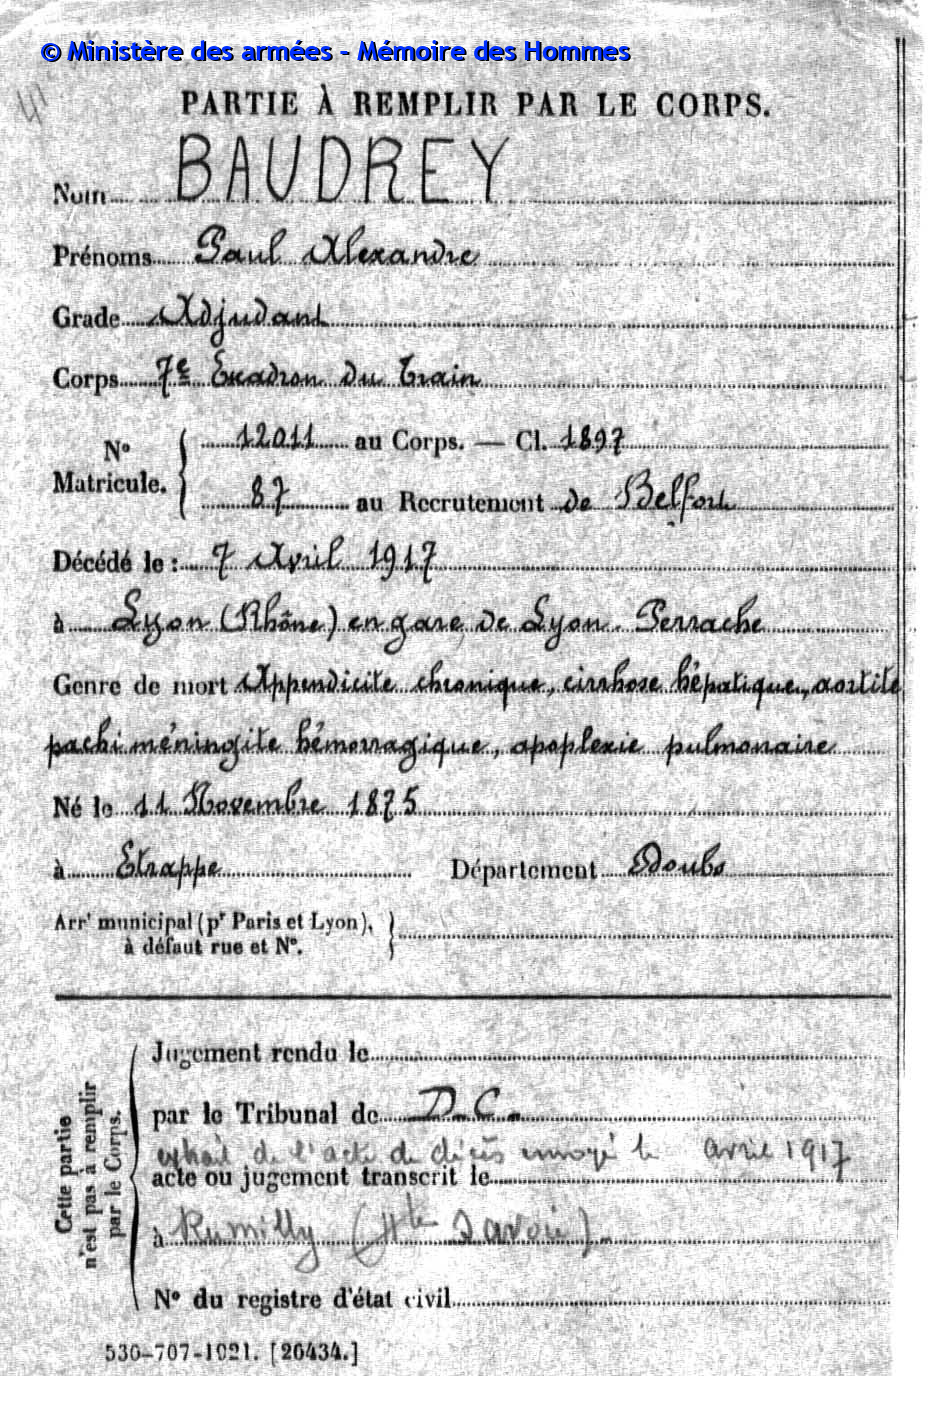 © Ministère des armées - Mémoire des Hommes
PARTIE À REMPLIR PAR LE CORPS.
Nom BAUDREY
Prénoms Paul Alexandre
Grade Adjudant
Corps 7e Escadron du Train
No Matricule. { 12011 au Corps. — Cl. 1897
87 au Recrutement de Belfort
Décédé le : 7 Avril 1917
à Lyon (Rhône) en gare de Lyon-Perrache
Genre de mort Appendicite chronique, cirrhose hépatique, aortite
pachiméningite hémorragique, apoplexie pulmonaire
Né le 11 Novembre 1875
à Etrappe Département Doubs
Arrt municipal (pr Paris et Lyon),
à défaut rue et No.
Cette partie n'est pas à remplir par le Corps.
Jugement rendu le
par le Tribunal de D.C.
extrait de l'acte de décès envoyé le avril 1917
acte ou jugement transcrit le
à Rumilly (Hte Savoie)
No du registre d'état civil
530-707-1921. [26434.]